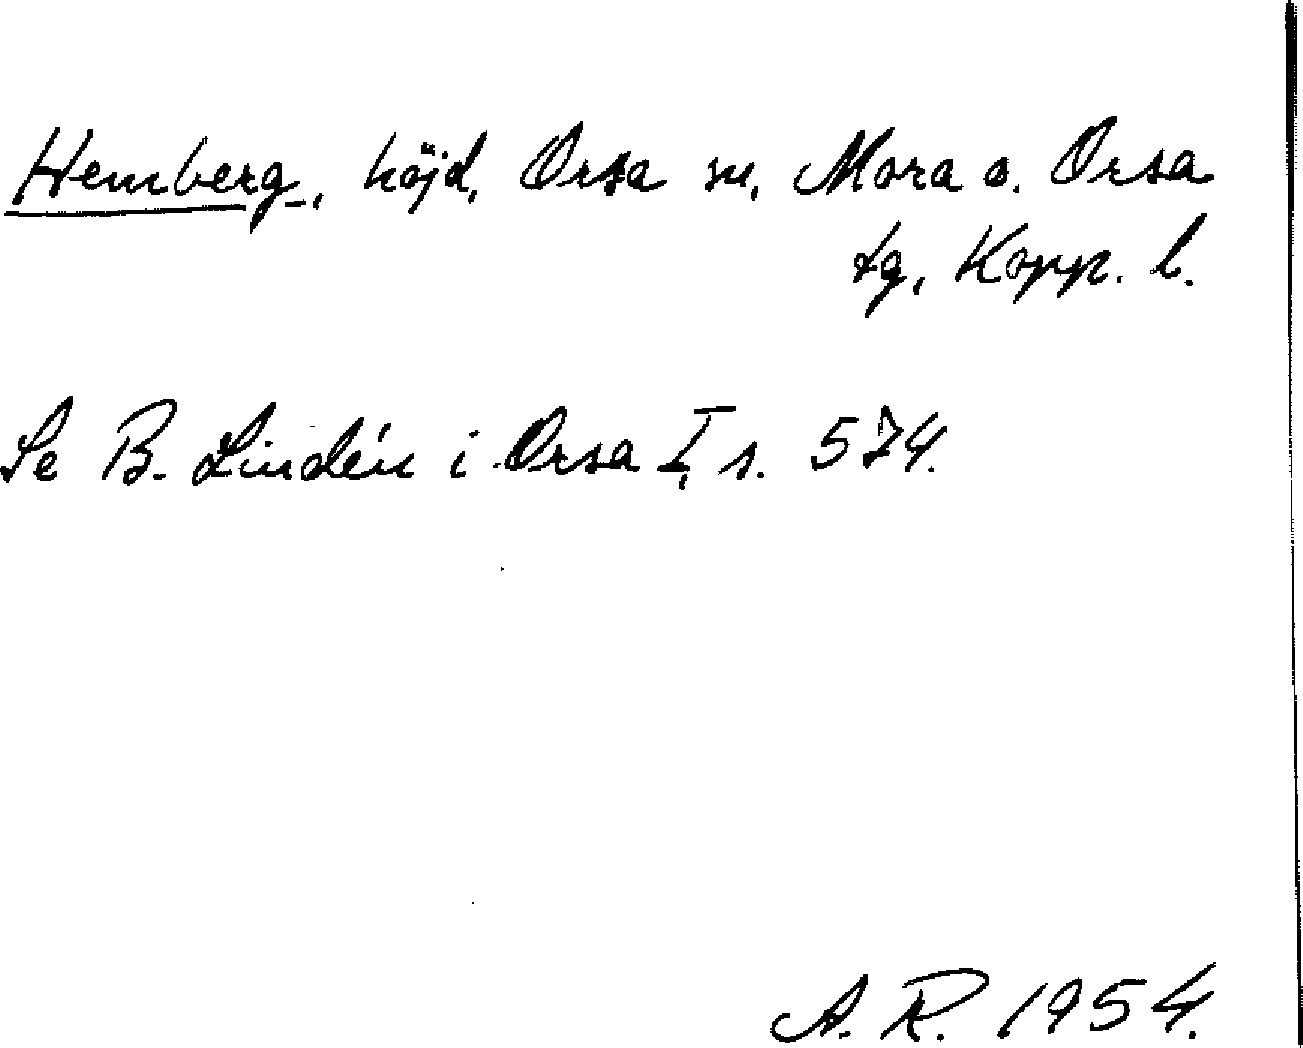 Hemberg, höjd, Orsa sn, Mora o. Orsa
tg, Kopp. l.
Se B. Lindén i Orsa I, s. 574.
A. R. 1954.